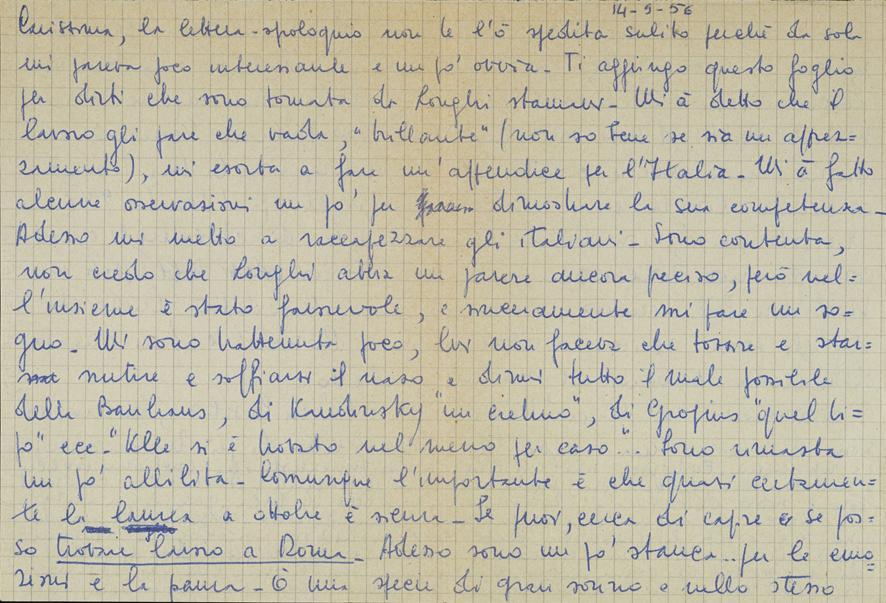 14-9-56
Carissima, la lettera-spoloquio non te l'ò spedita subito perché da sola
mi pareva poco interessante e un po' ovvia - Ti aggiungo questo foglio
per dirti che sono tornata da Longhi stamane - Mi à detto che il
lavoro gli pare che vada, "brillante" (non so bene se sia un apprez=
zamento), mi esorta a fare un'appendice per l'Italia - Mi à fatto
alcune osservazioni un po' per dimostrare la sua competenza -
Adesso mi metto a raccapezzare gli italiani - Sono contenta,
non credo che Longhi abbia un parere ancora preciso, però nel=
l'insieme è stato favorevole, e sinceramente mi pare un so=
gno - Mi sono trattenuta poco, lui non faceva che tossire e star=
nutire e soffiarsi il naso e dirmi tutto il male possibile
della Bauhaus, di Kandinsky "un cretino", di Gropius "quel ti=
po" ecc - "Klee si è trovato nel meno per caso".. Sono rimasta
un po' allibita - Comunque l'importante è che quasi certamen=
te la laurea a ottobre è sicura - Se puoi, cerca di capire se pos=
so trovare lavoro a Roma - Adesso sono un po' stanca.. per le emo=
zioni e la paura - Ò una specie di gran sonno e nello stesso